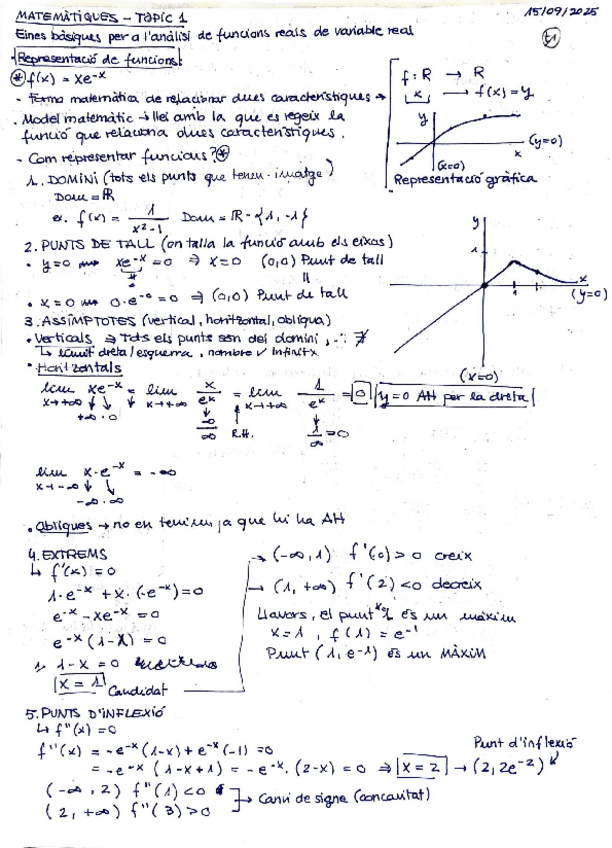 MATEMÀTIQUES - TOPIC 1
15/09/2025
Eines bàsiques per a l'anàlisi de funcions reals de variable real
Representació de funcions:
f(x) = xe^-x
- Forma matemàtica de relacionar dues característiques →
. Model matemàtic → llei amb la que es regeix la
funció que relaciona dues característiques.
f: R → R
x → f(x) = y
y
(y=0)
x
(x=0)
Representació gràfica
- Com representar funcions?
1. DOMINI (tots els punts que tenen imatge)
Dom = R
ex. f(x) = 1/(x²-1) Dom = R - {1, -1}
2. PUNTS DE TALL (on talla la funció amb els eixos)
• y=0 xe^-x = 0 ⇒ x=0 (0,0) Punt de tall
• x=0 0·e^-0 = 0 ⇒ (0,0) Punt de tall
y
1
1
x
(y=0)
(x=0)
3. ASSÍMPTOTES (vertical, horitzontal, obliqua)
• Verticals ⇒ tots els punts són del domini, ∴ ∄
↳ límit dreta/esquerra, nombre / infinit x
• Horitzontals
lim x→+∞ xe^-x = lim x→+∞ x/e^x = lim x→+∞ 1/e^x = 0 y=0 AH per la dreta
+∞ · 0
∞/∞ R.H. 1/∞ = 0
lim x→-∞ x·e^-x = -∞
-∞ · ∞
• Obliques → no en tenim ja que hi ha AH
4. EXTREMS
↳ f'(x) = 0
1·e^-x + x·(-e^-x) = 0
e^-x - xe^-x = 0
e^-x (1-x) = 0
1-x = 0
x = 1 Candidat
→ (-∞, 1) f'(0) > 0 creix
→ (1, +∞) f'(2) < 0 decreix
Llavors, el punt x=1 és un màxim
x=1, f(1) = e^-1
Punt (1, e^-1) és un MÀXIM
5. PUNTS D'INFLEXIÓ
↳ f''(x) = 0
f''(x) = -e^-x (1-x) + e^-x (-1) = 0
= -e^-x (1-x+1) = -e^-x · (2-x) = 0 ⇒ x=2 → (2, 2e^-2)
Punt d'inflexió
(-∞, 2) f''(1) < 0
(2, +∞) f''(3) > 0
→ Canvi de signe (concavitat)